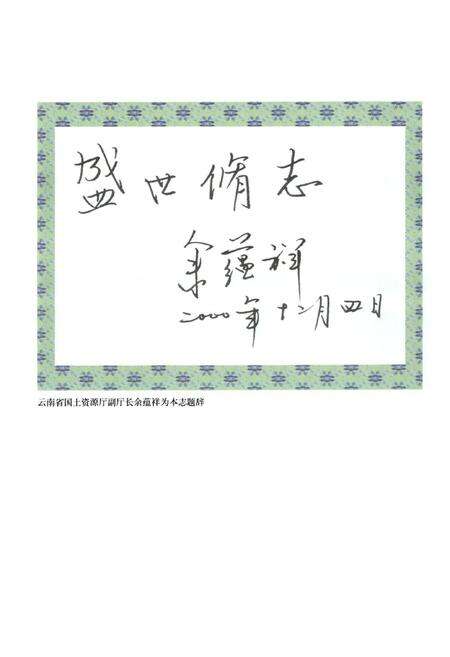 盛世脩志
余蕴祥
二000年十二月四日
云南省国土资源厅副厅长余蕴祥为本志题辞